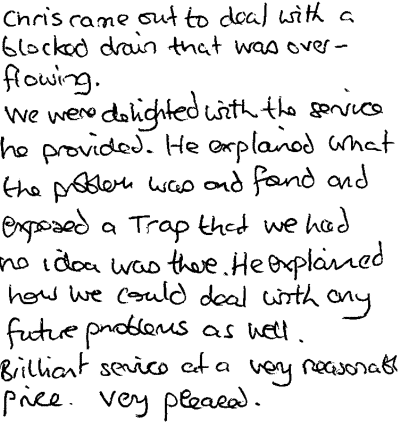 Chris came out to deal with a
blocked drain that was over-
flowing.
We were delighted with the service
he provided. He explained what
the problem was and found and
exposed a Trap that we had
no idea was there. He explained
how we could deal with any
future problems as well.
Brilliant service at a very reasonable
price. Very pleased.